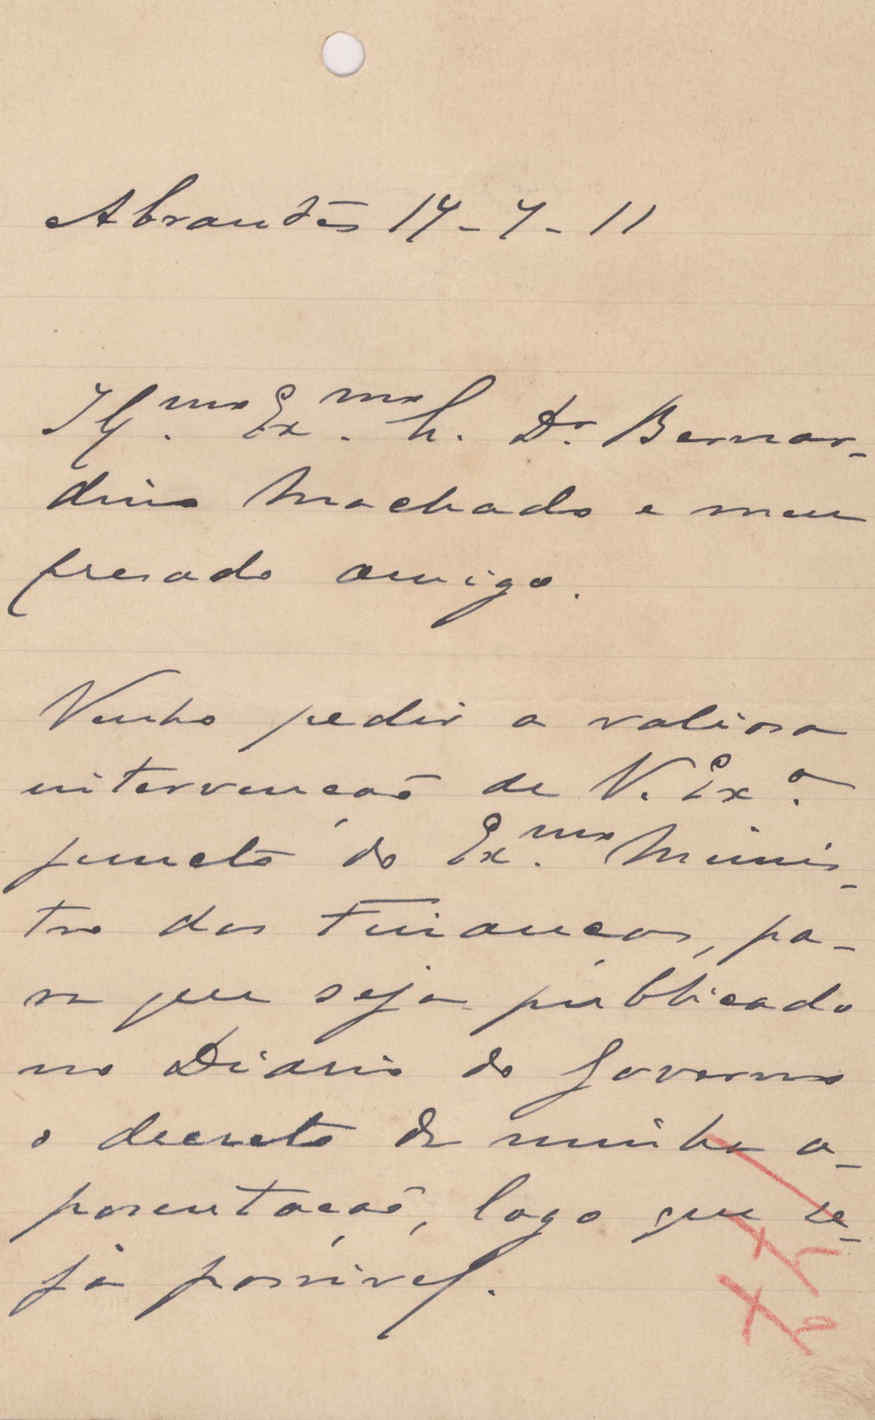 Abrantes 14-7-11
Ill.mo Ex.mo Sr. Dr. Bernar-
dino Machado e meu
presado amigo.
Venho pedir a valiosa
intervenção de V. Ex.a
juncto do Ex.mo Minis-
tro das Finanças, pa-
ra que seja publicado
no Diario do Governo
o decreto de minha a-
posentação, logo que se-
ja possivel.